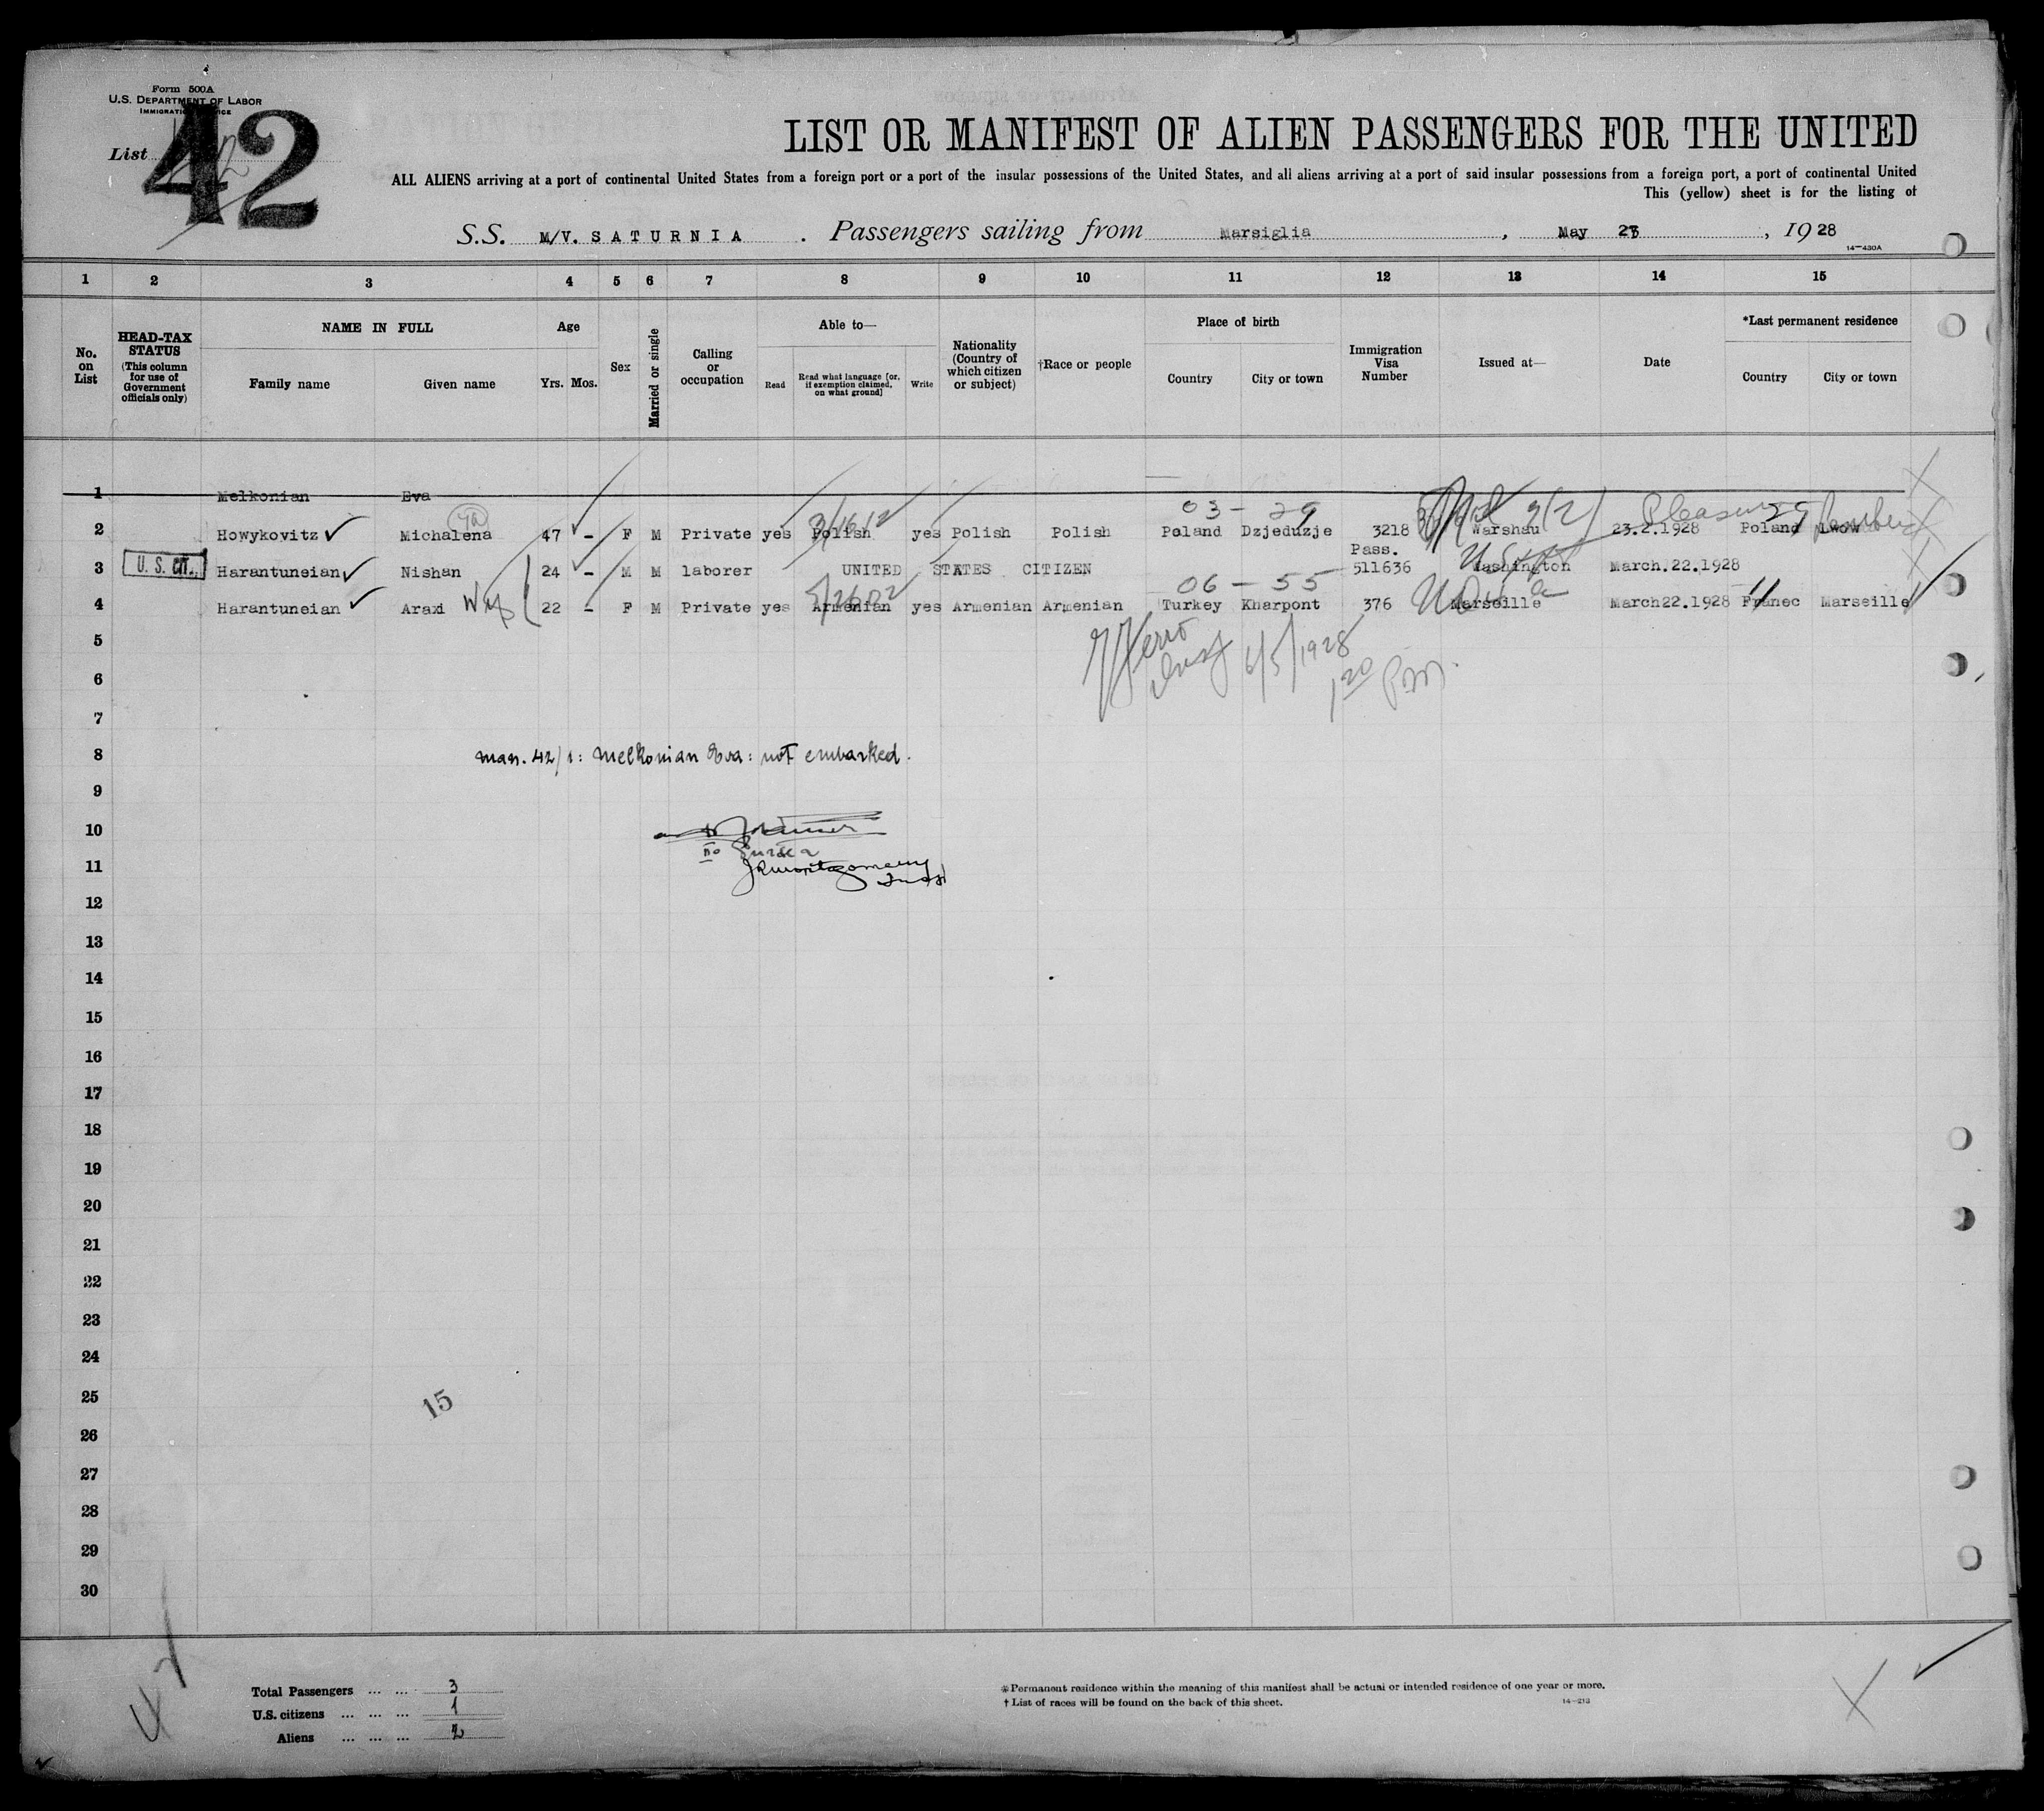 Form 500A
U.S. DEPARTMENT OF LABOR
IMMIGRATION SERVICE
List 42
LIST OR MANIFEST OF ALIEN PASSENGERS FOR THE UNITED
ALL ALIENS arriving at a port of continental United States from a foreign port or a port of the insular possessions of the United States, and all aliens arriving at a port of said insular possessions from a foreign port, a port of continental United
This (yellow) sheet is for the listing of
S.S. M/V. SATURNIA. Passengers sailing from Marsiglia, May 23, 1928
14—430A
1 2 3 4 5 6 7 8 9 10 11 12 13 14 15
No. on List
HEAD-TAX STATUS (This column for use of Government officials only)
NAME IN FULL
Family name Given name
Age
Yrs. Mos.
Sex
Married or single
Calling or occupation
Able to—
Read Read what language [or, if exemption claimed, on what ground] Write
Nationality (Country of which citizen or subject)
†Race or people
Place of birth
Country City or town
Immigration Visa Number
Issued at—
Date
*Last permanent residence
Country City or town
1 Melkonian Eva
03-29
2 Howykovitz Michalena 47 - F M Private yes Polish yes Polish Polish Poland Dzjeduzje 3218 Warshau 23.2.1928 Poland Lwow
3 U. S. CIT. Harantuneian Nishan 24 - M M laborer UNITED STATES CITIZEN Pass. 511636 Washington March.22.1928
06-55
4 Harantuneian Araxi Wife 22 - F M Private yes Armenian yes Armenian Armenian Turkey Kharpont 376 Marseille March22.1928 Franec Marseille
5
6/5/1928
6
1 20 P.M.
7
8 Man. 42/1: Melkonian Eva: not embarked.
9
10
11
JRMontgomery
12
13
14
15
16
17
18
19
20
21
22
23
24
25
15
26
27
28
29
30
Total Passengers ... ... 3
U.S. citizens ... ... ... 1
Aliens ... ... ... 2
*Permanent residence within the meaning of this manifest shall be actual or intended residence of one year or more.
† List of races will be found on the back of this sheet.
14—212